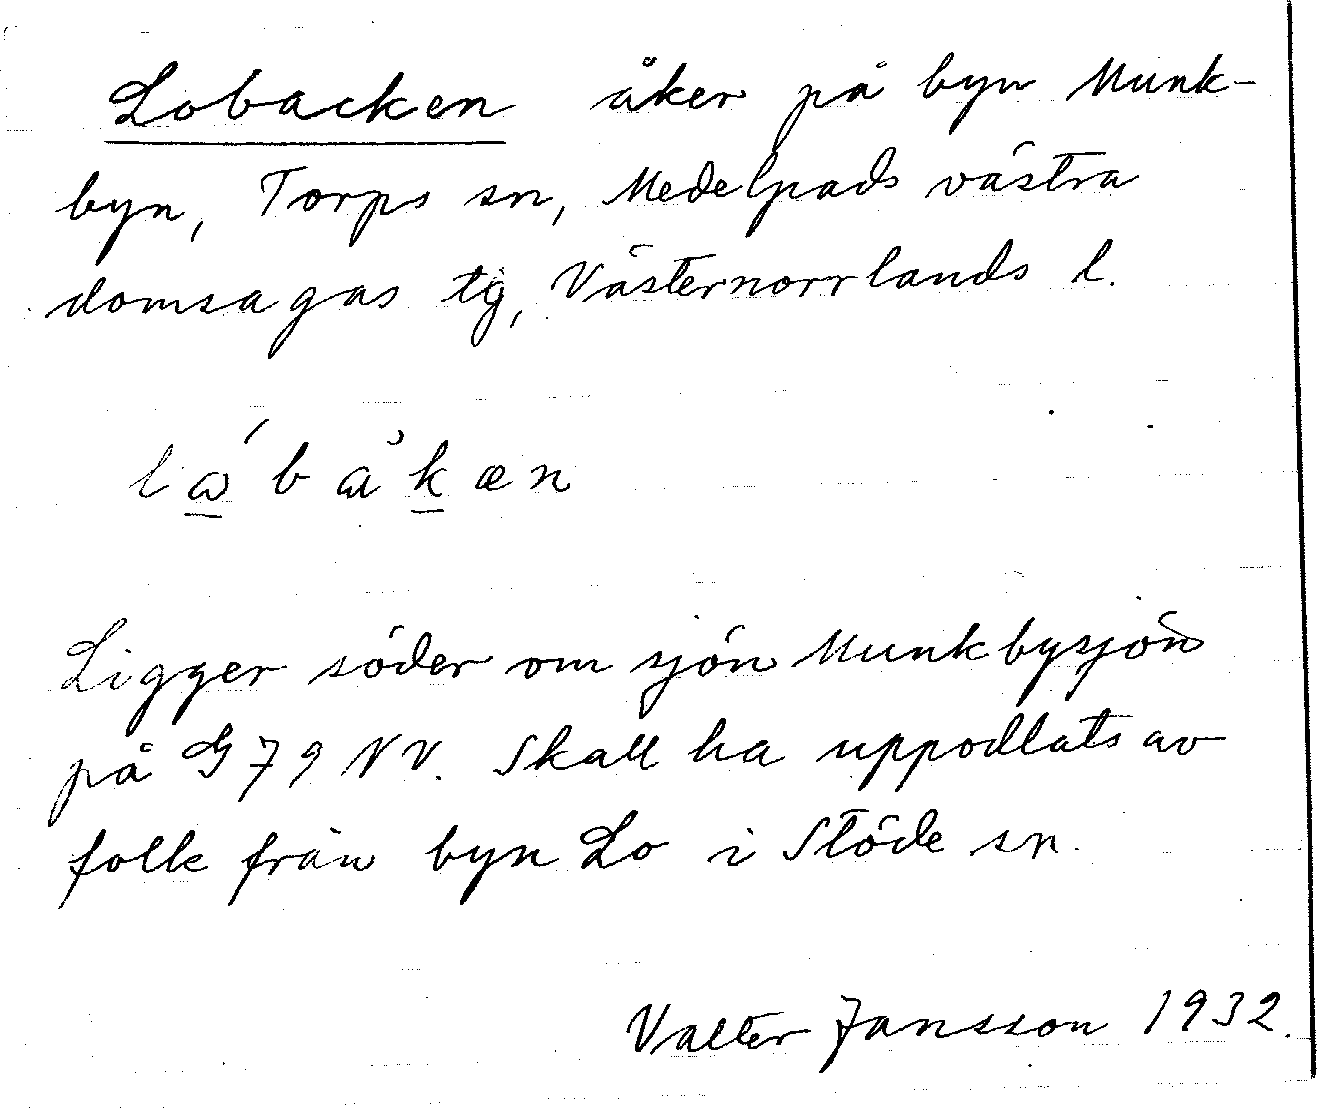 Lobacken åker på byn Munk-
byn, Torps sn, Medelpads västra
domsagas tg, Västernorrlands l.
Ligger söder om sjön Munkbysjön
på G 79 NV. Skall ha uppodlats av
folk från byn Lo i Stöde sn.
Valter Jansson 1932.